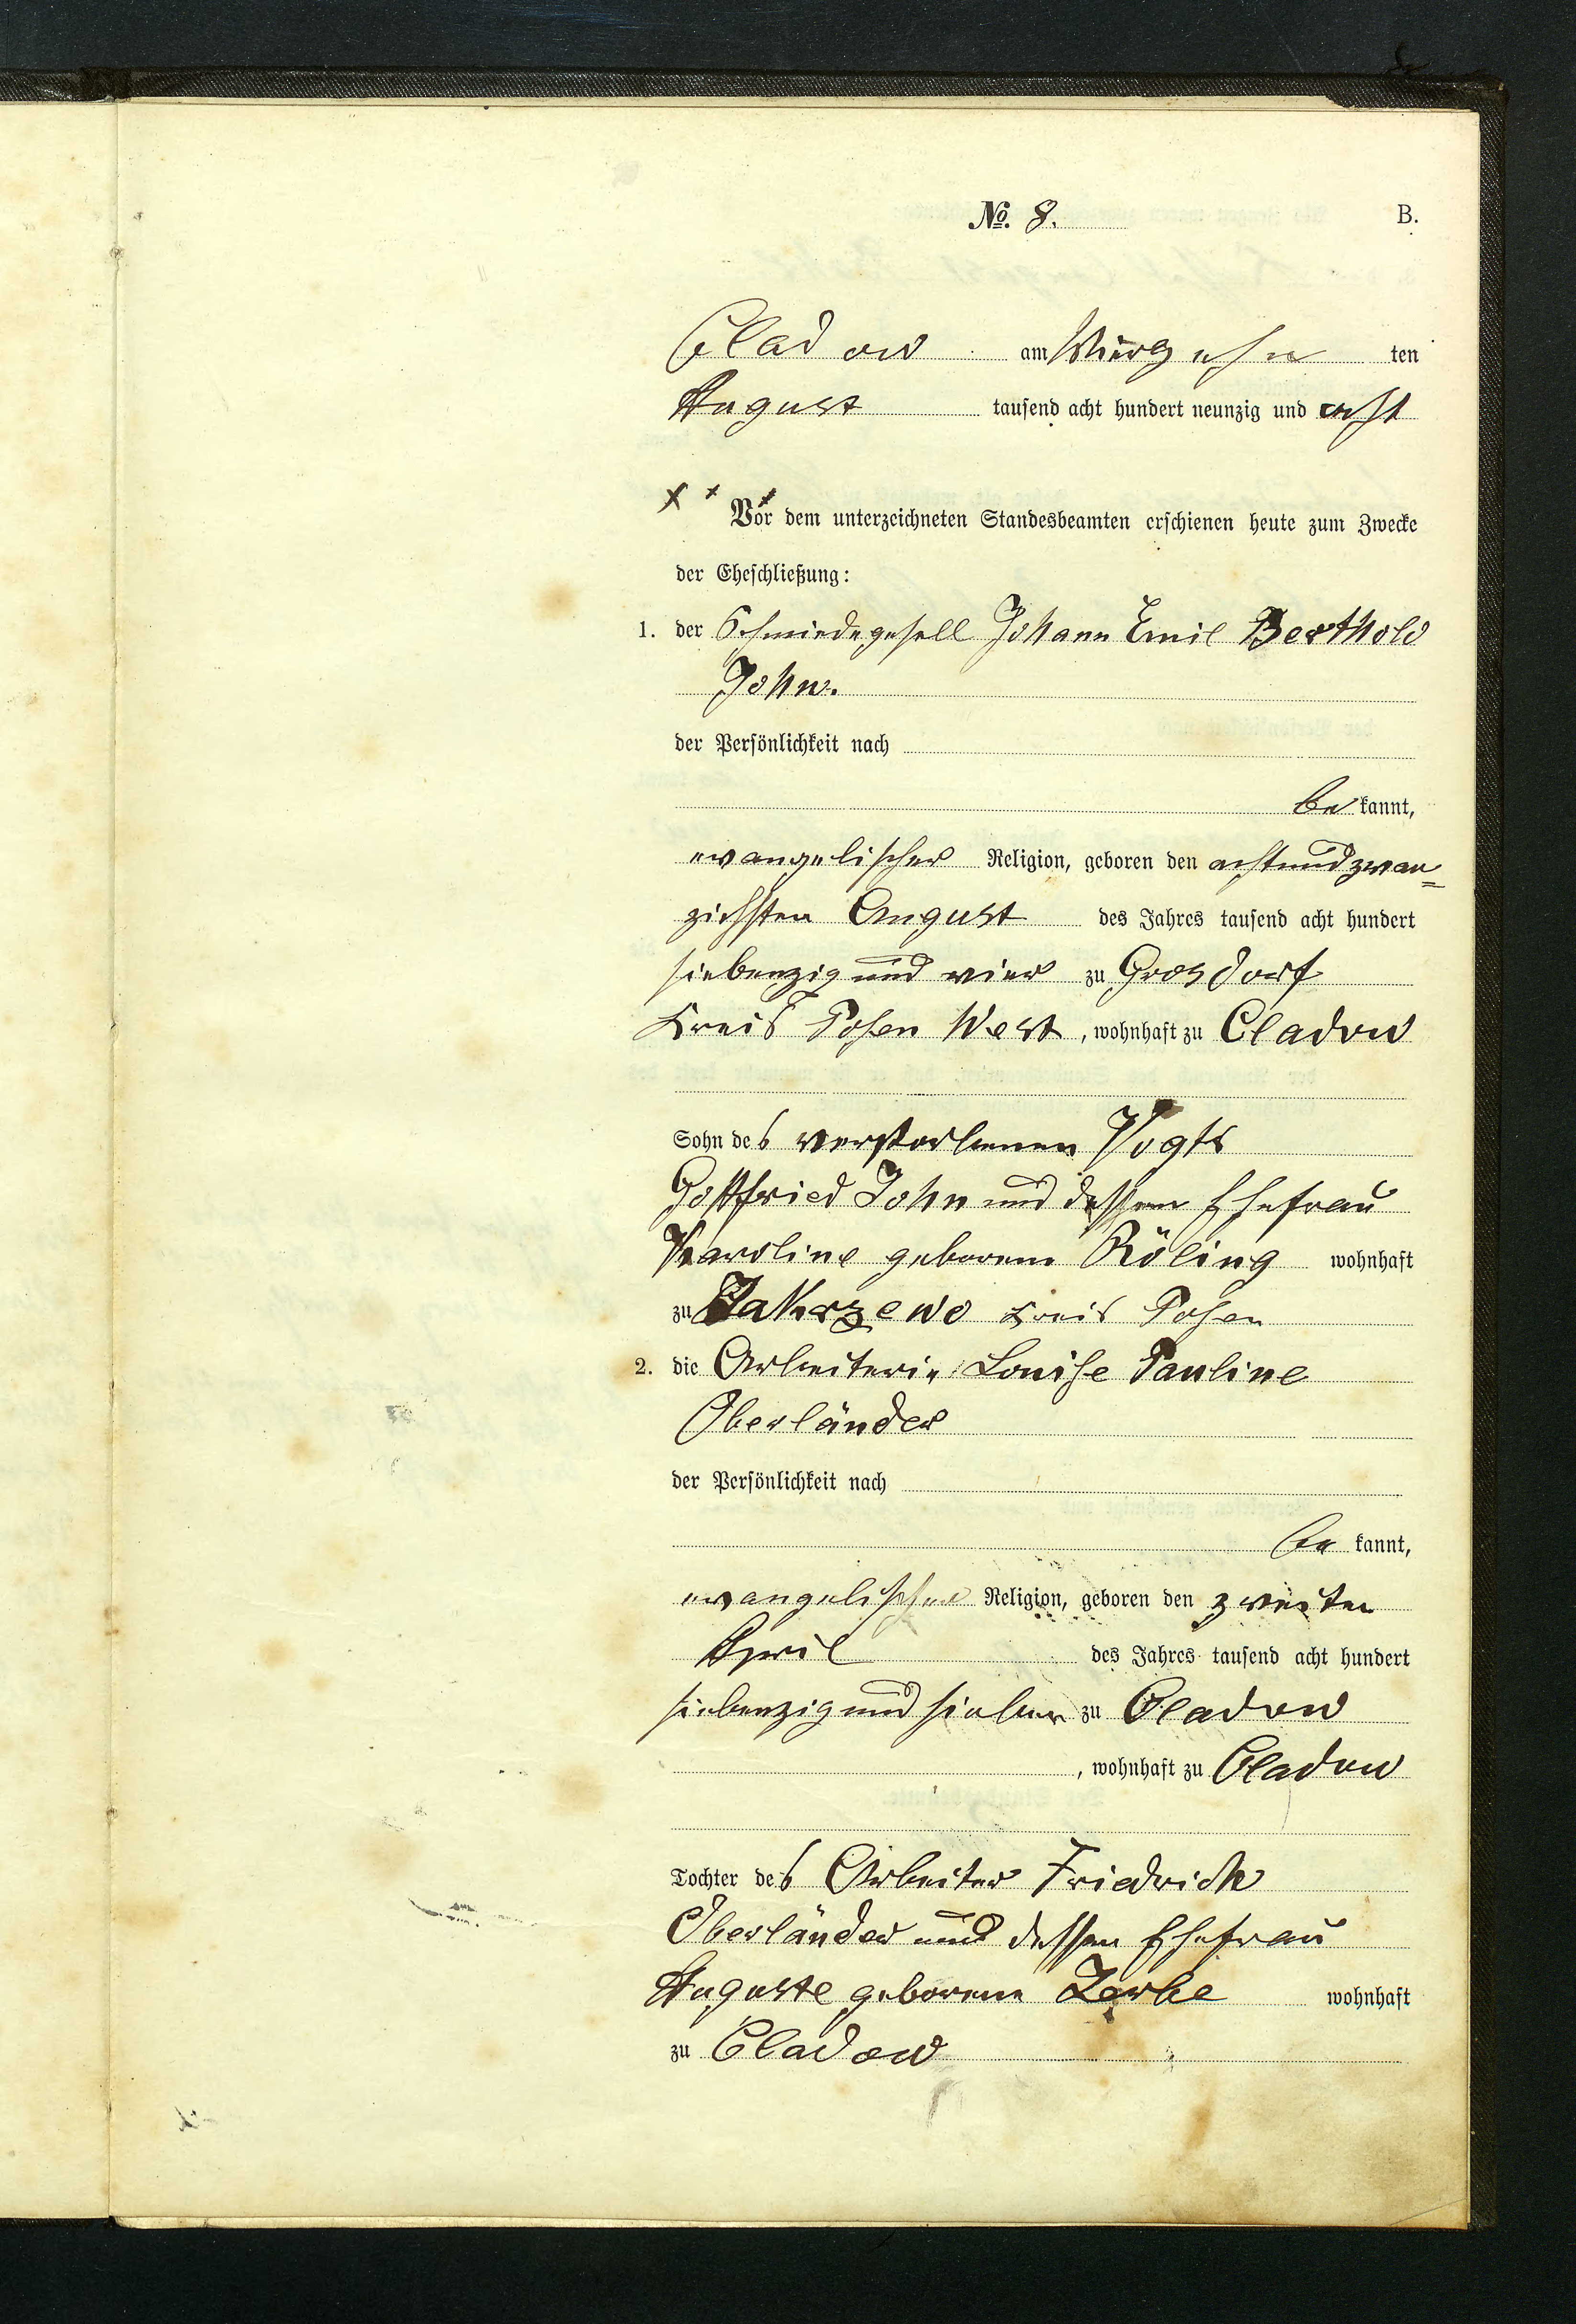 No. 8. B.
Cladow am Vierzehn ten
August tausend acht hundert neunzig und acht
Vor dem unterzeichneten Standesbeamten erschienen heute zum Zwecke
der Eheschließung:
1. der Schmiedegesell Johann Emil Berthold
John.
der Persönlichkeit nach
be kannt,
evangelischer Religion, geboren den achtundzwan=
zichsten August des Jahres tausend acht hundert
siebenzig und vier zu Grosdorf
Kreis Posen West, wohnhaft zu Cladow
Sohn des verstorbenen Vogts
Gottfried John und dessen Ehefrau
Karoline geborene Röling wohnhaft
zu Zakrzewo Kreis Posen
2. die Arbeiterin Louise Pauline
Oberländer
der Persönlichkeit nach
be kannt,
evangelischer Religion, geboren den zweiten
April des Jahres tausend acht hundert
siebenzig und sieben zu Cladow
, wohnhaft zu Cladow
Tochter des Arbeiter Friedrich
Oberländer und dessen Ehefrau
Auguste geborene Zerbe wohnhaft
zu Cladow